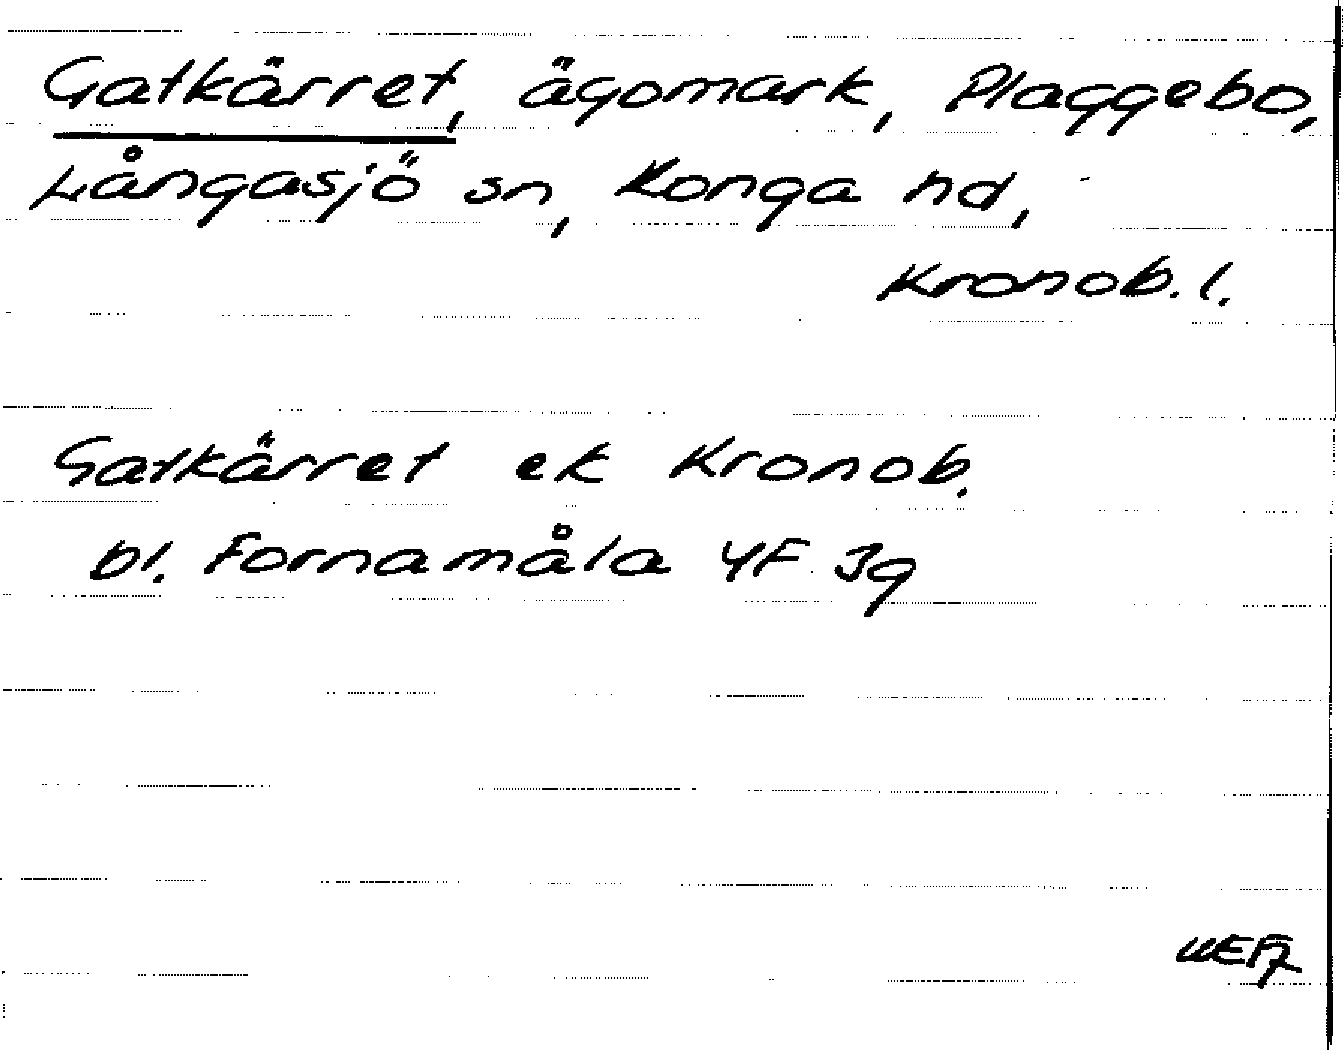 Gatkärret, ägomark, Plaggebo,
Långasjö sn, Konga hd,
Kronob. l.
Gatkärret ek Kronob.
bl. Fornamåla 4F 3g